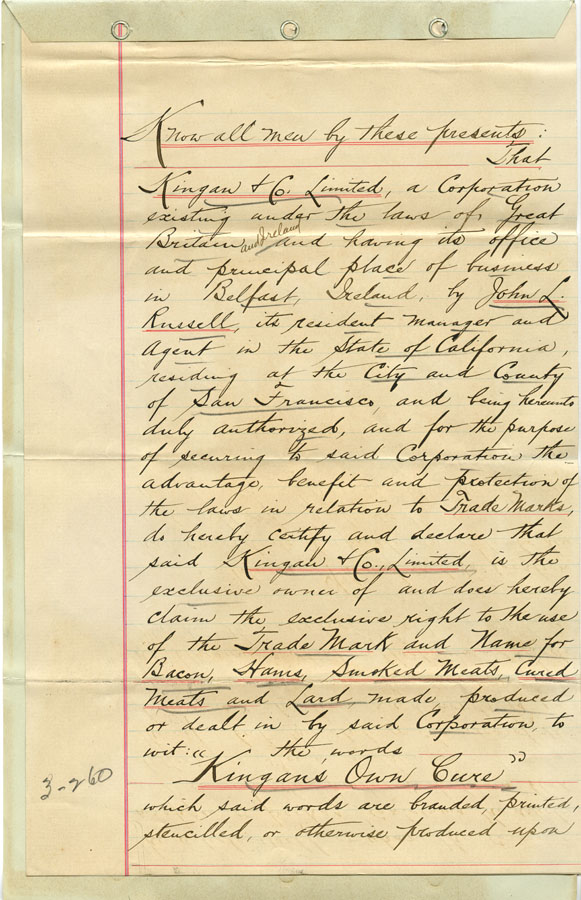 Know all men by these presents:
That
Kingan & Co. Limited, a Corporation
existing under the laws of Great
Britain and Ireland and having its office
and principal place of business
in Belfast, Ireland, by John L.
Russell, its resident manager and
Agent in the State of California,
residing at the City and County
of San Francisco, and being hereunto
duly authorized, and for the purpose
of securing to said Corporation the
advantage, benefit and protection of
the laws in relation to Trade Marks,
do hereby certify and declare that
said Kingan & Co., Limited, is the
exclusive owner of and does hereby
claim the exclusive right to the use
of the Trade Mark and Name for
Bacon, Hams, Smoked Meats, Cured
Meats and Lard, made, produced
or dealt in by said Corporation, to
wit: the words
"Kingan's Own Cure"
3-260
which said words are branded, printed,
stencilled, or otherwise produced upon